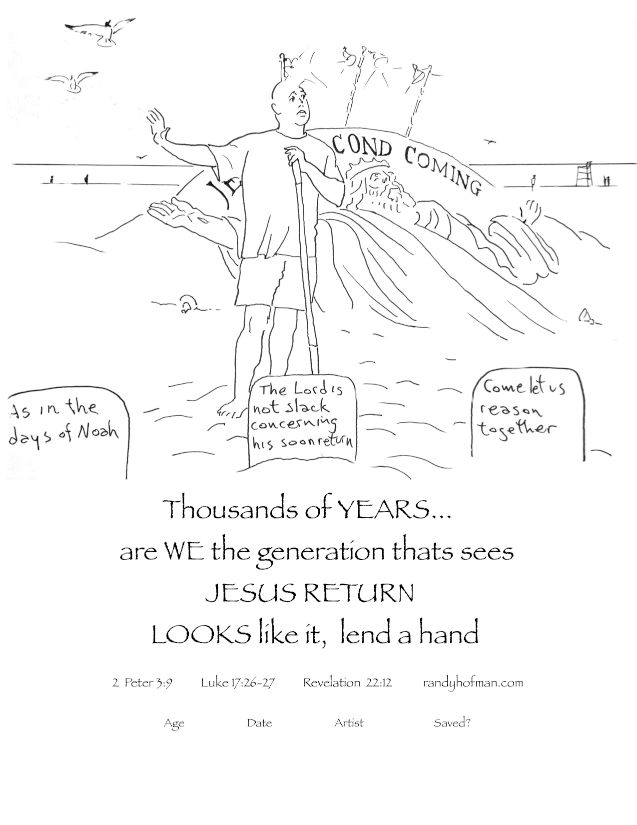 JE
COND COMING
As in the
days of Noah
The Lord is
not slack
concerning
his soon return
Come let us
reason
together
Thousands of YEARS...
are WE the generation thats sees
JESUS RETURN
LOOKS like it, lend a hand
2 Peter 3:9 Luke 17:26-27 Revelation 22:12 randyhofman.com
Age Date Artist Saved?